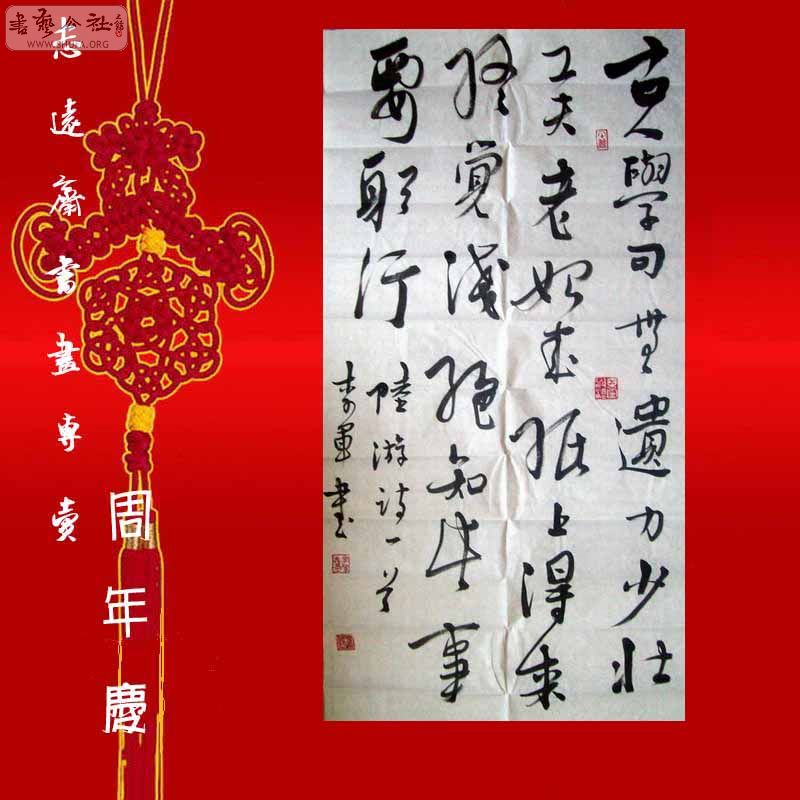 書藝公社
WWW.SHUFA.ORG
志遠齋書畫專賣
周年慶
古人學問無遺力少壯
工夫老始成紙上得來
終覺淺絕知此事
要躬行
陸游詩一首
李軍書